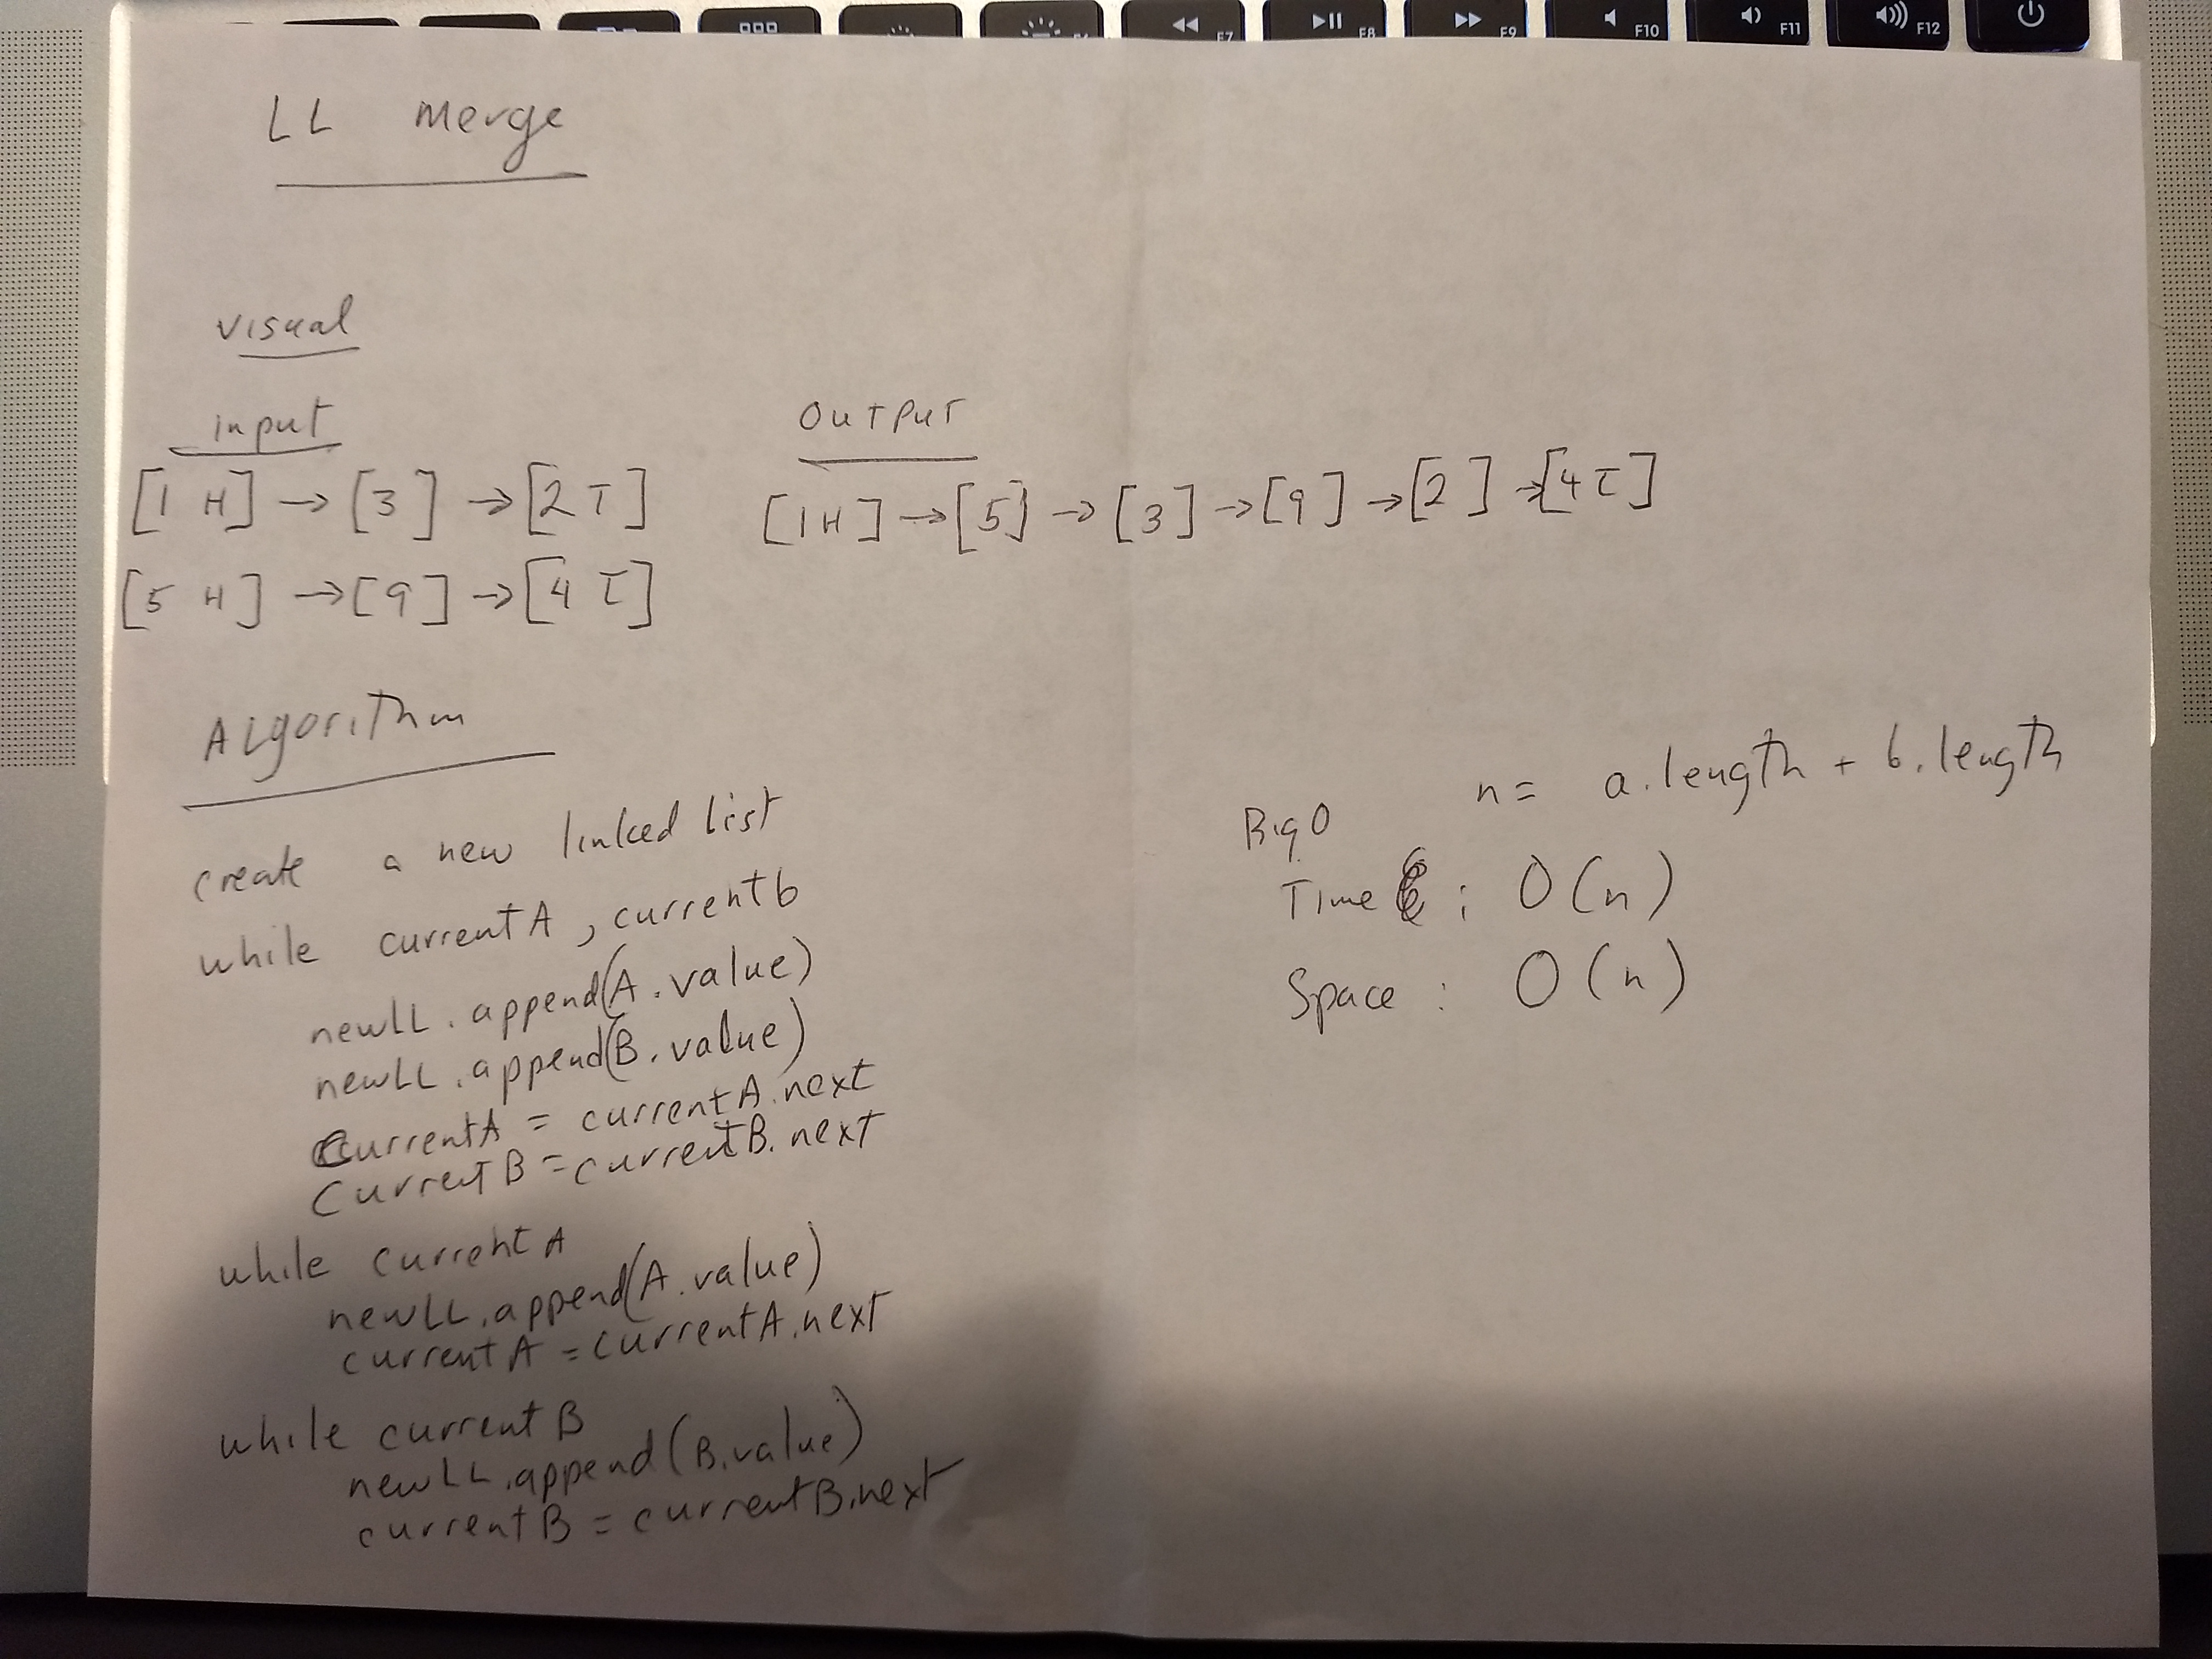 F7 F8 F9 F10 F11 F12
LL Merge
visual
input
[1 H] → [3] → [2 T]
[5 H] → [9] → [4 T]
output
[1H] → [5] → [3] → [9] → [2] → [4 T]
Algorithm
create a new linked list
while currentA, currentb
newLL.append(A.value)
newLL.append(B.value)
currentA = currentA.next
CurrentB = currentB.next
while currentA
newLL.append(A.value)
currentA = currentA.next
while currentB
newLL.append(B.value)
currentB = currentB.next
n= a.length + b.length
Big O
Time : O(n)
Space : O(n)